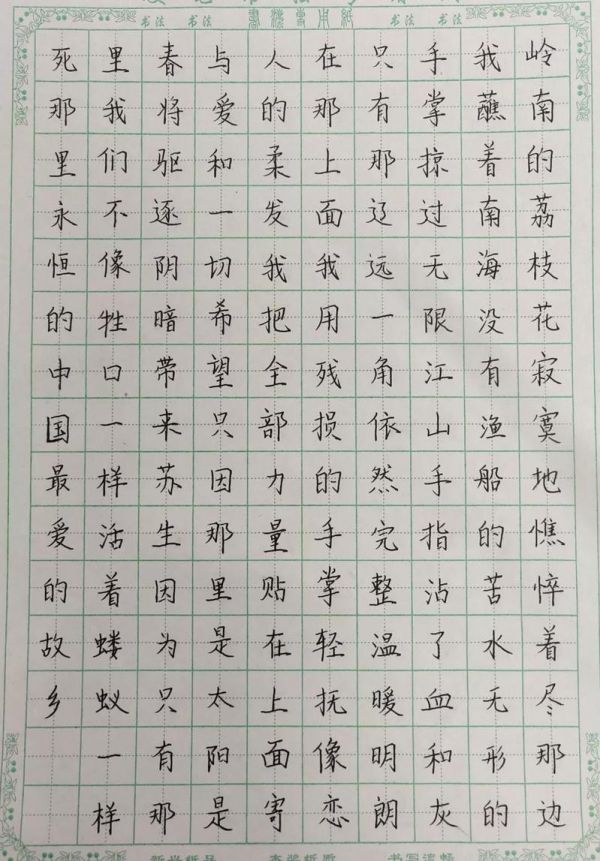 书法 书法 书法 书法
岭南的荔枝花寂寞地憔悴着尽那边
我蘸着南海没有渔船的苦水无形的
手掌掠过无限江山手指沾了血和灰
只有那辽远一角依然完整温暖明朗
在那上面我用残损的手掌轻抚像恋
人的柔发我把全部力量贴在上面寄
与爱和一切希望只因那里是太阳是
春将驱逐阴暗带来苏生因为只有那
里我们不像牲口一样活着蝼蚁一样
死那里永恒的中国最爱的故乡